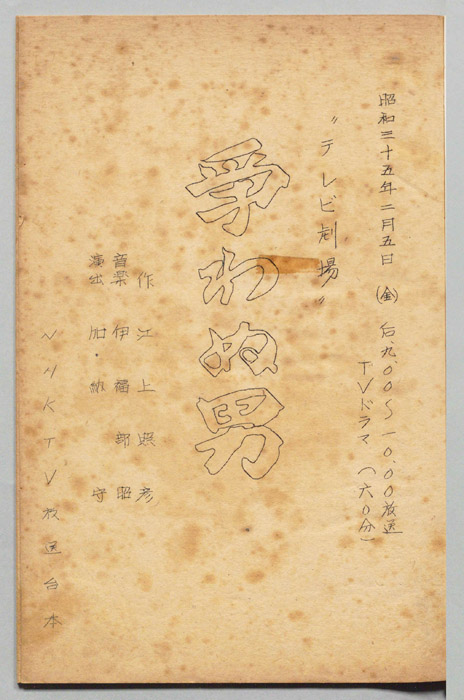 昭和三十五年二月五日（金）后.九.00〜一0.00放送
TVドラマ（六0分）
〝テレビ劇場〟
争わぬ男
作 江上照彦
音楽 伊福部昭
演出 加納守
NHKTV放送台本